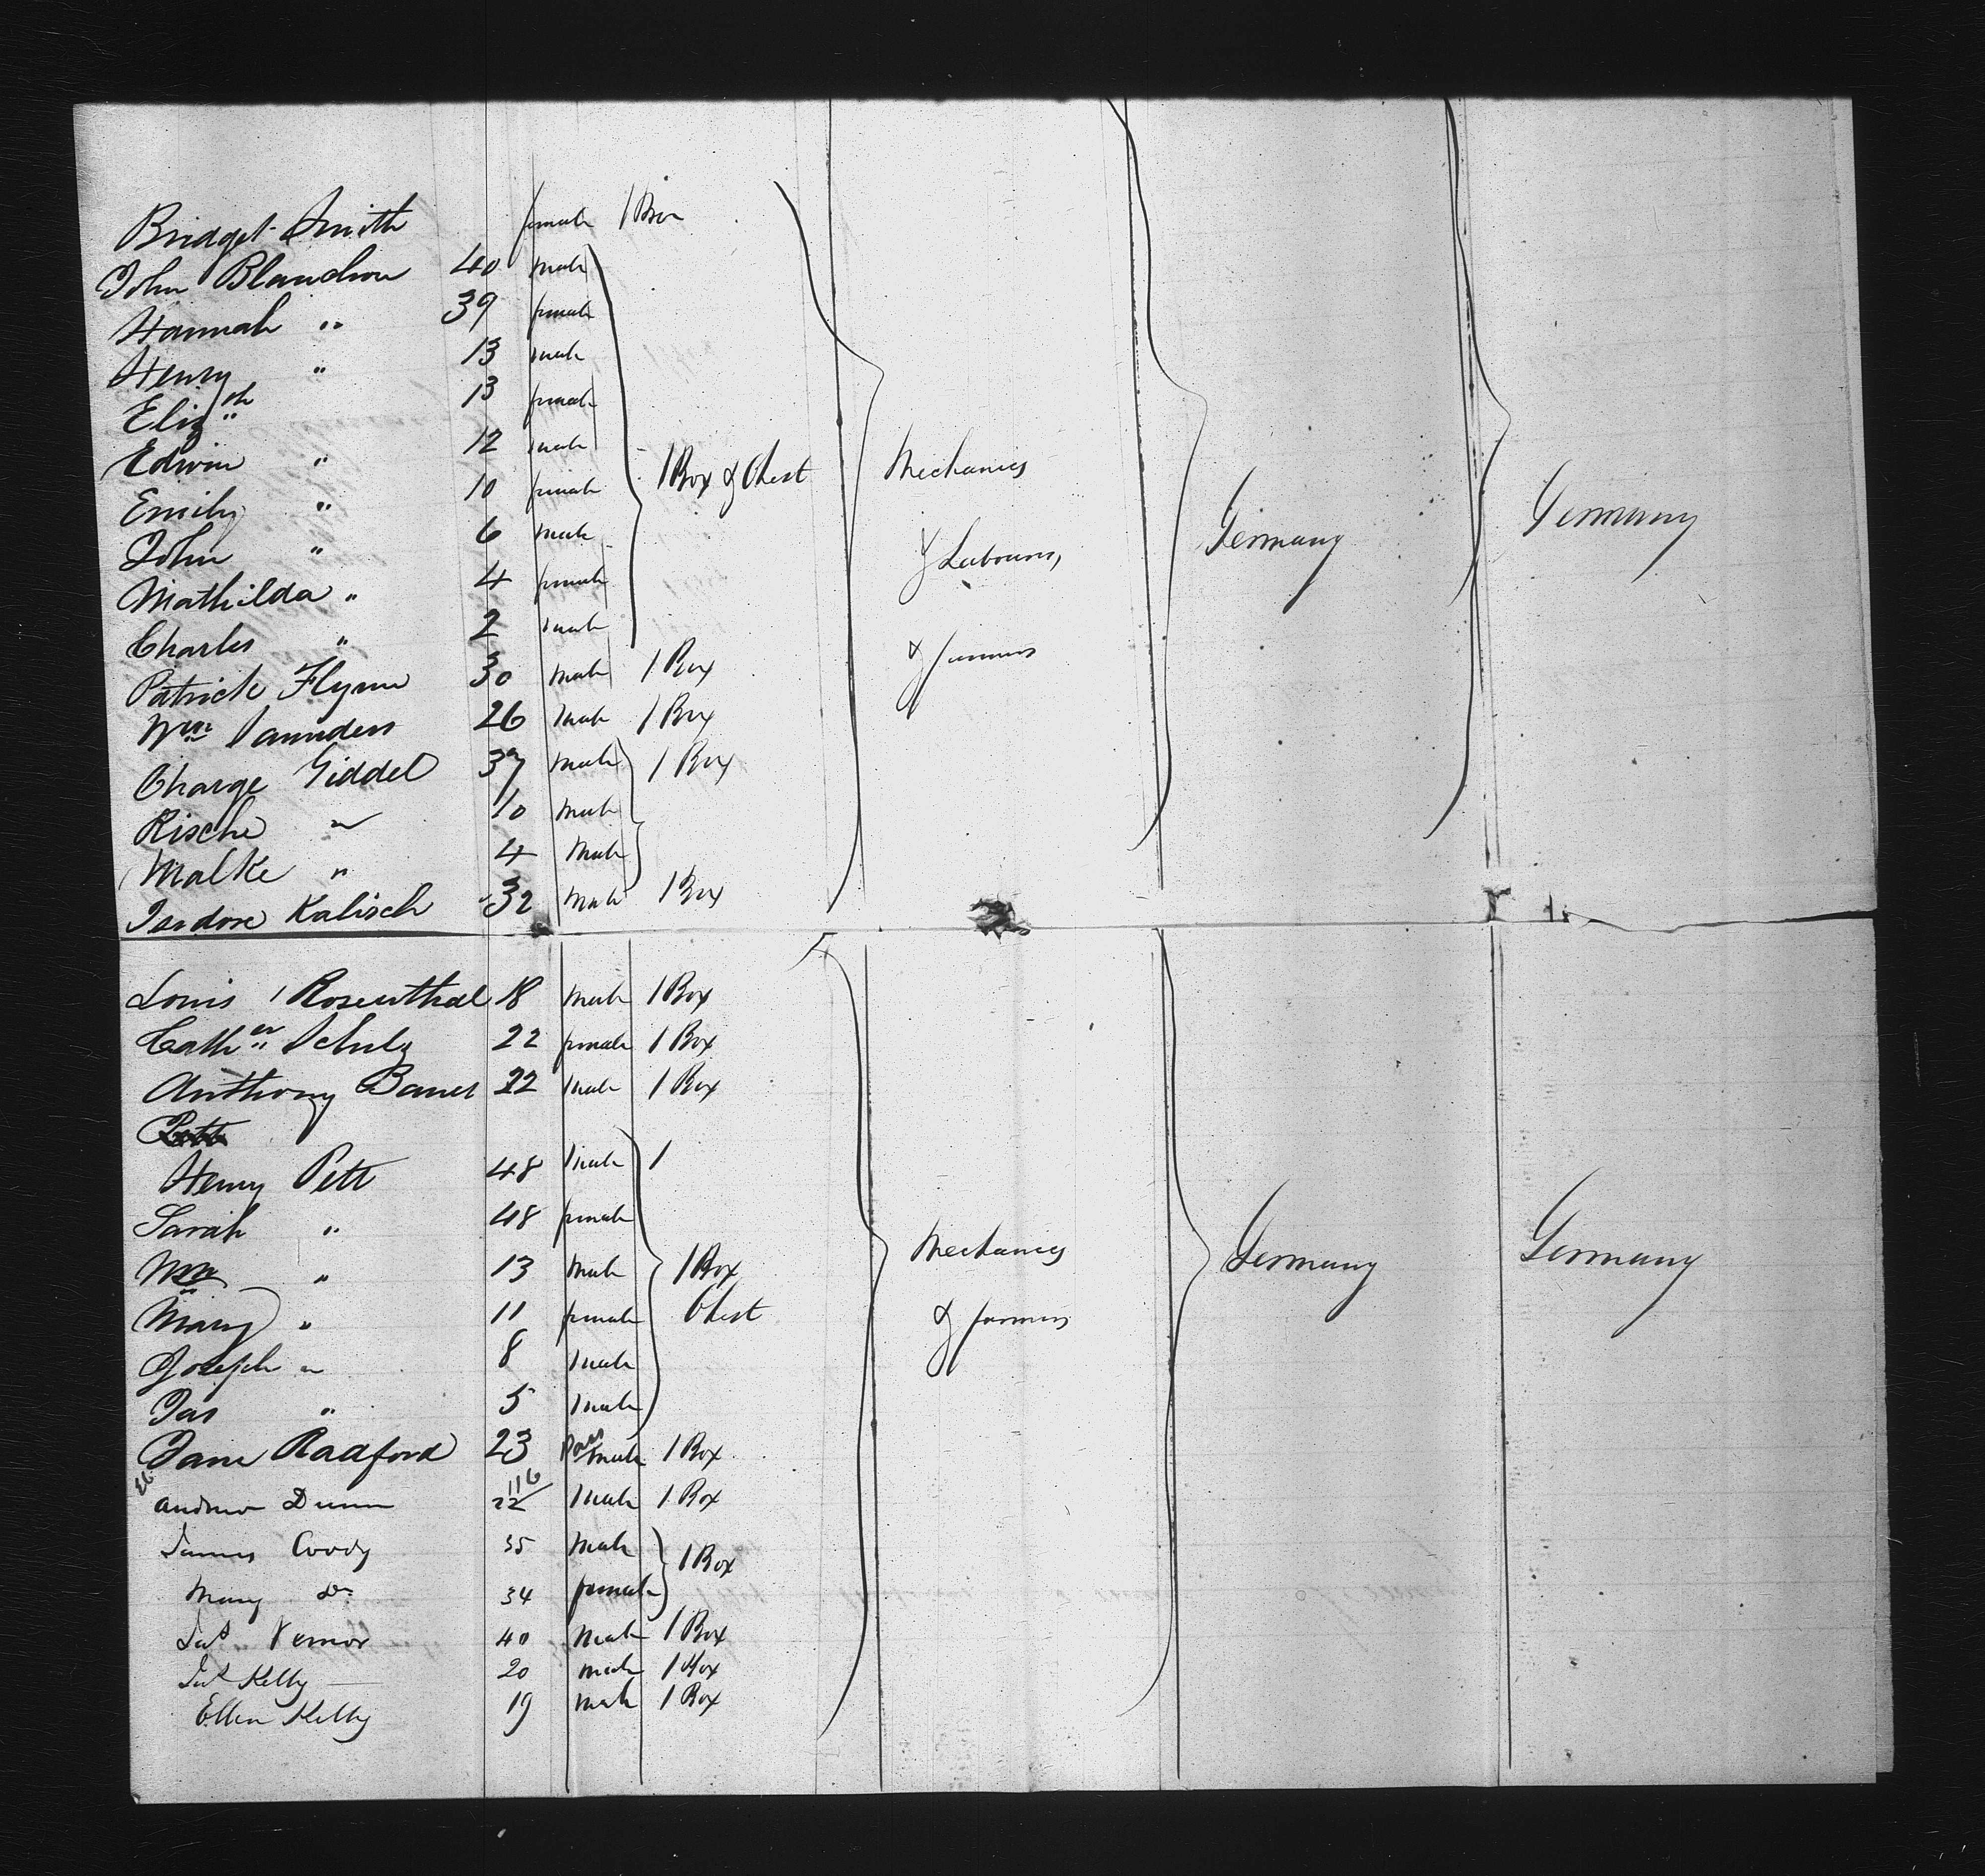 Bridget Smith female 1 Box
John Blandron 40 male
Hannah " 39 female
Henry " 13 male
Eliz th " 13 female
Edwin " 12 male
Emily " 10 female 1 Box & Chest Mechanics
John " 6 male & Labourers, Germany Germany
Mathilda " 4 female
Charles " 2 male
Patrick Flynn 30 male 1 Box & farmers
Wm Saunders 26 male 1 Box
Charge Giddel 37 male 1 Box
Rische " 10 male
Malke " 4 male
Isidore Kalisch 32 male 1 Box
Louis Rosenthal 18 male 1 Box
Cath en Schulz 22 female 1 Box
Anthony 22 male 1 Box
Pett
Henry Pett 48 male 1
Sarah " 48 female
Wm " 13 male 1 Box Mechanics Germany Germany
Mary " 11 female Chest & farmers
Joseph " 8 male
Jas " 5 male
Jane Radford 23 male 1 Box
116
Andrew Dunn 22 male 1 Box
James Coody 35 male 1 Box
Mary Do 34 female
Jas Vernor 40 male 1 Box
Jas Kelly 20 male 1 Box
Ellen Kelly 19 male 1 Box